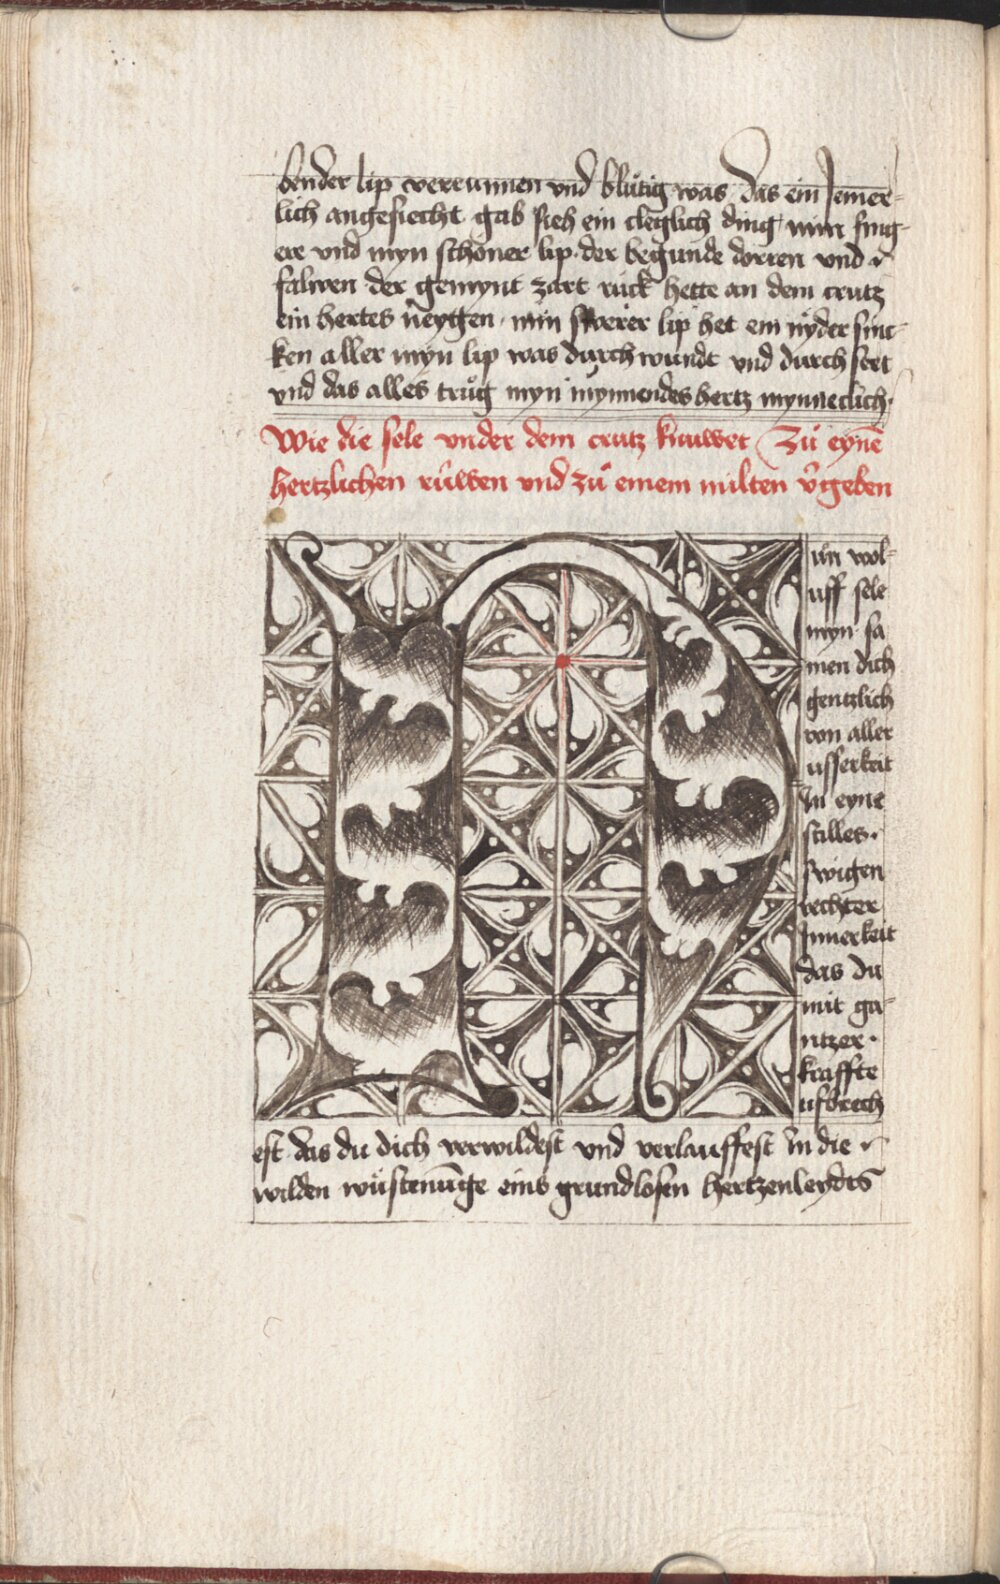 bender lip verrunnen vnd blůtig was. das ein Jemer-
lich angesiecht gab sich ein cleglich ding min Jnng-
ere vnd myn schöner lip. der begunde dorren vnd
falwen der gemynt zart rück hette an dem crutz
ein hertes neygen. min swerer lip het ein nyder sinc-
ken aller myn lip was durch wundt vnd durch sert
vnd das alles trůg myn mynnendes hertz mynneclich.
Wie die sele vnder dem crutz knuwet Zů eynē
hertzlichen rüwen vnd zů einem milten v̄geben
Nůn wol-
uff sele
myn sa
men dich
gentzlich
von aller
usserkeit
In eyne
stilles.
swigen
rechter
Innerkeit
das du
mit ga-
ntzer.
kraffte
ufbrech
est das du dich verwildest vnd verlauffest In die
wilden wůstenūge eins grundlosen hertzenleydts